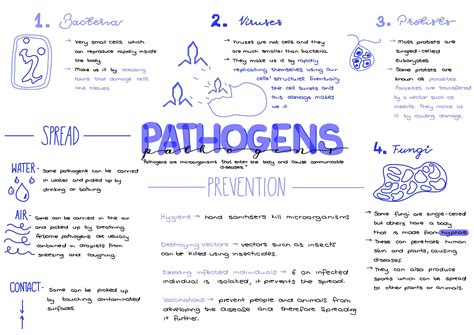 1. Bacteria
→ Very small cells which
can reproduce rapidly inside
the body.
→ Make us ill by releasing
toxins that damage cells
and tissues.
2. Viruses
→ Viruses are not cells and they
are much smaller than bacteria.
→ They make us ill by rapidly
replicating themselves using our
cells' structure. Eventually
the cell bursts and
this damage makes
us ill.
3. Protists
→ Most protists are
singled-celled
eukaryotes.
→ Some protists are
known as parasites.
Parasites are transferred
by a vector such as
insects. They make us
ill by causing damage.
SPREAD
WATER- Some pathogens can be carried
in water and picked up by
drinking or bathing.
AIR- Some can be carried in the air
and picked up by breathing.
Airborne pathogens are usually
contained in droplets from
sneezing and coughing.
CONTACT- Some can be picked up
by touching contaminated
surfaces.
PATHOGENS
pathogens
"Pathogens are microorganisms that enter the body and cause communicable
diseases."
PREVENTION
Hygiene → hand sanitisers kill microorganisms
Destroying vectors → vectors such as insects
can be killed using insecticides.
Isolating infected individuals → if an infected
individual is isolated, it prevents the spread.
Vaccinations → prevent people and animals from
developing the disease and therefore spreading
it further.
4. Fungi
→ Some fungi are single-celled
but others have a body
that is made from hyphae.
These can penetrate human
skin and plants, causing
diseases.
→ They can also produce
spores which can be spread
to other plants and animals.